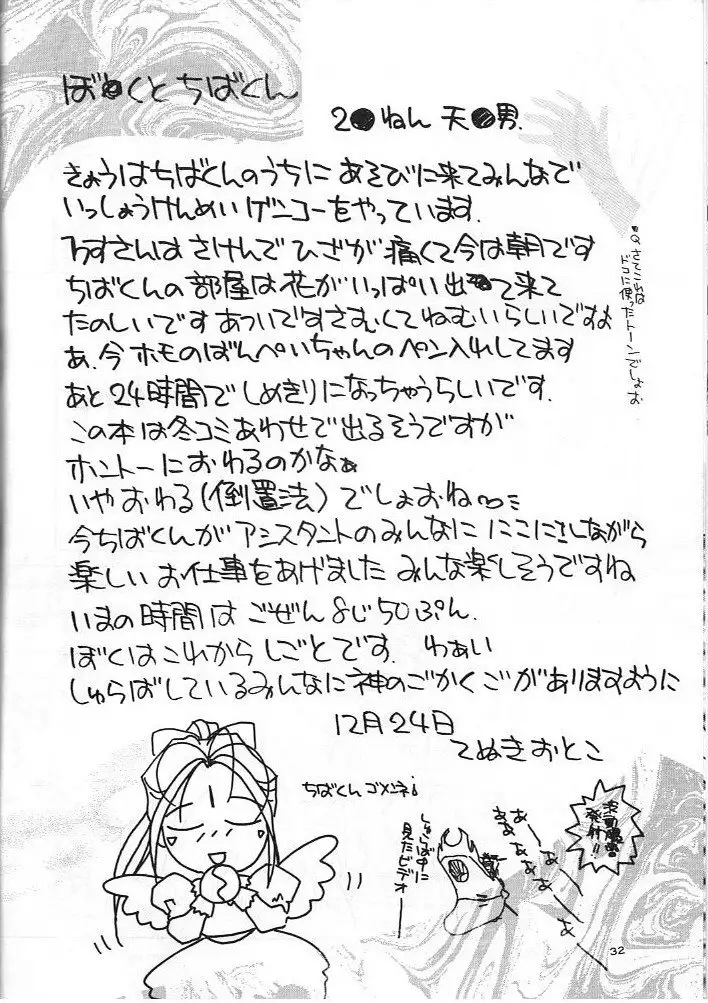 ぼ●くとちばくん
2●ねん 天●男.
きょうはちばくんのうちに あそびに来てみんなで
いっしょうけんめいゲンコーをやっています.
さんは さけんで ひざが 痛くて今は朝です
ちばくんの部屋は花がいっぱい出て来て
たのしいです あついですさむくてねむいらしいですよ
あ、今 ホモのばんぺいちゃんのペン入れしてます
あと24時間でしめきりになっちゃうらしいです.
この本は冬コミあわせで出るそうですが
ホントーにおわるのかなぁ
いやおわる(倒置法)でしょおね
今ちばくんがアシスタントのみんなに にこにこしながら
楽しい お仕事をあげました みんな楽しそうですね
いまの時間は ごぜん8じ50ぷん.
ぼくはこれから しごとです. わぁい
しゅらばしているみんなに神のごかくごがありますように
12月24日
てぬきおとこ
Q.さてこれは
ドコに使ったトーンでしょお
ちばくんゴメンネ!
しゅらば中に
見たビデオー
あーー
ああああああ
あ
発射!!
32